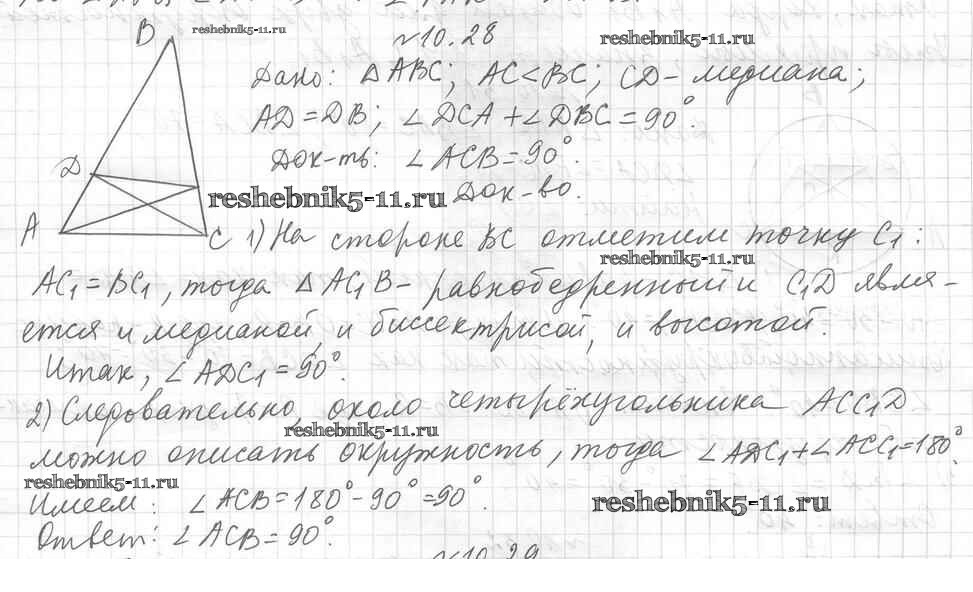 B
reshebnik5-11.ru
№10.28
reshebnik5-11.ru
Дано: △ABC; AC<BC; CD - медиана;
AD=DB; ∠DCA+∠DBC=90°.
Док-ть: ∠ACB=90°.
D
reshebnik5-11.ru
Док-во.
A
C
1) На стороне BC отметим точку C₁:
reshebnik5-11.ru
AC₁=BC₁, тогда △AC₁B - равнобедренный и C₁D явля-
ется и медианой, и биссектрисой, и высотой.
Итак, ∠ADC₁=90°.
2) Следовательно, около четырёхугольника ACC₁D
reshebnik5-11.ru
можно описать окружность, тогда ∠ADC₁+∠ACC₁=180°.
reshebnik5-11.ru
Имеем: ∠ACB=180°-90°=90°.
reshebnik5-11.ru
Ответ: ∠ACB=90°.
№10.29